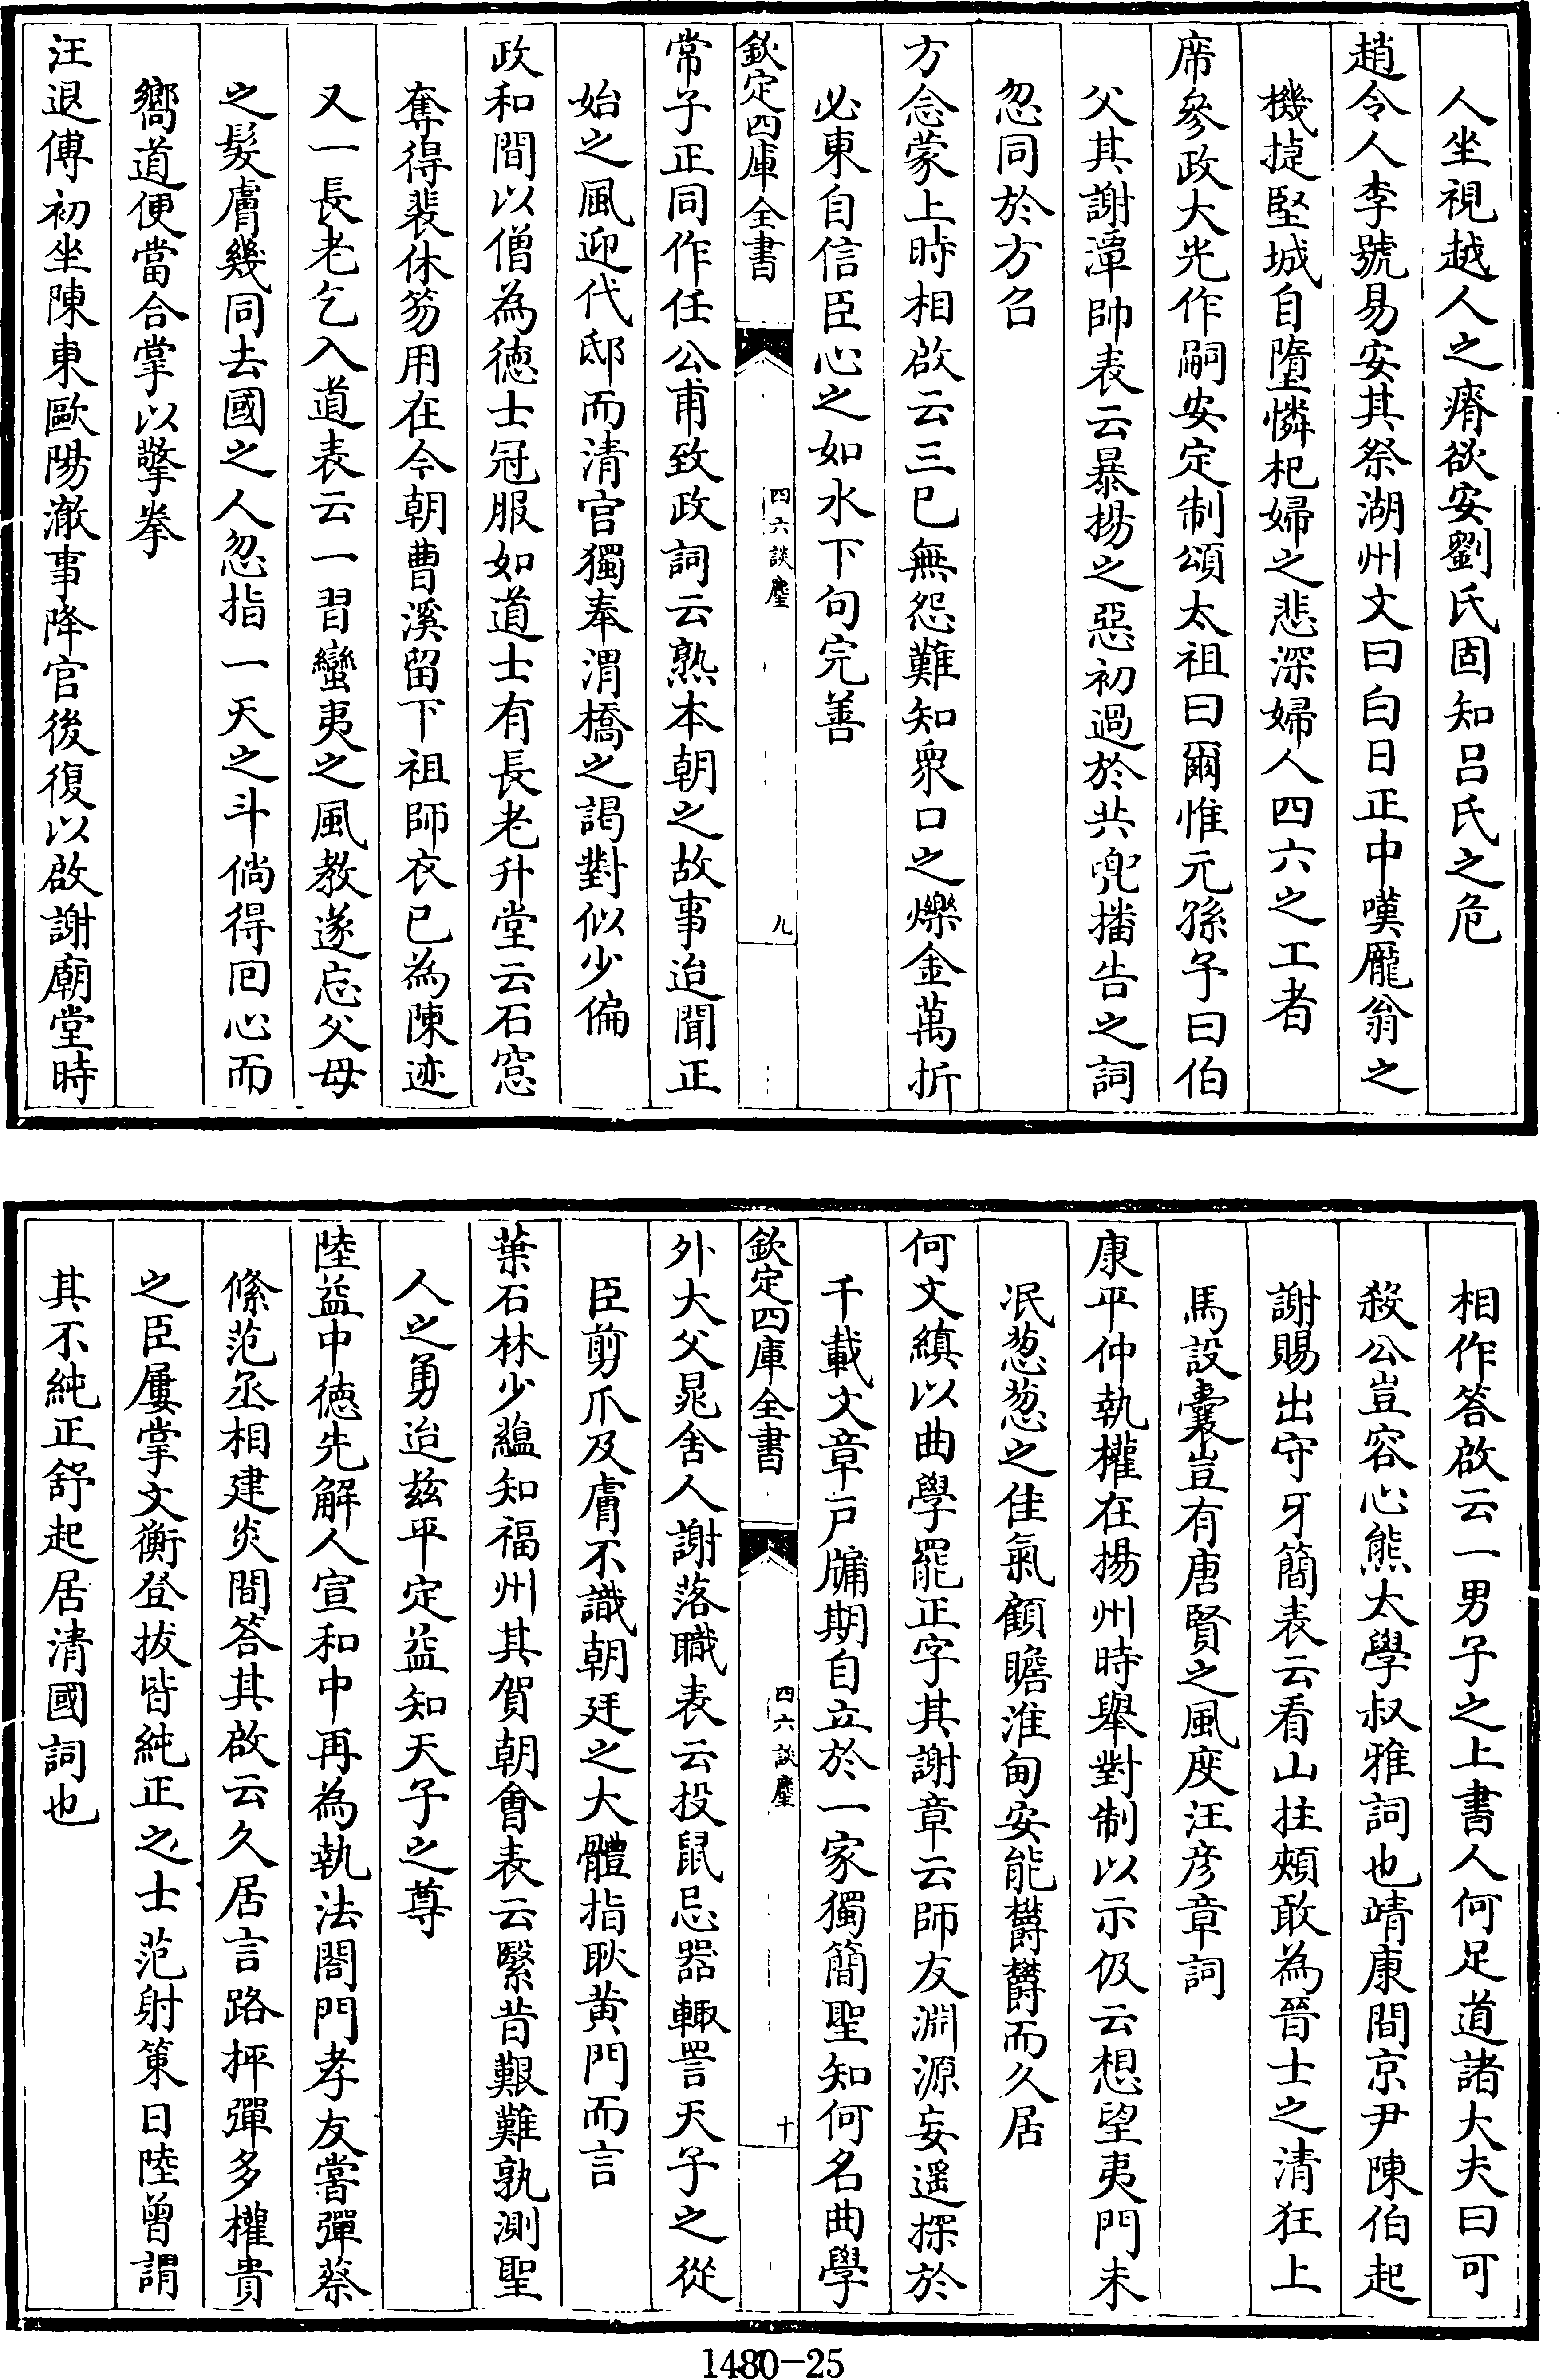 人坐視越人之瘠欲安劉氏固知吕氏之危
趙令人李號易安其祭湖州文曰白日正中嘆龎翁之
機捷堅城自墮憐杞婦之悲深婦人四六之工者
席參政大光作嗣安定制頌太祖曰爾惟元孫予曰伯
父其謝潭帥表云暴揚之惡初過於共兜播告之詞
忽同於方召
方念蒙上時相啟云三已無怨難知衆口之爍金萬折
必東自信臣心之如水下句完善
欽定四庫全書
四六談麈
九
常子正同作任公甫致政詞云熟本朝之故事迨聞正
始之風迎代邸而清官獨奉渭橋之謁對似少偏
政和間以僧為德士冠服如道士有長老升堂云石窓
奪得裴休笏用在今朝曹溪留下祖師衣已為陳迹
又一長老乞入道表云一習蠻夷之風教遂忘父母
之髮膚幾同去國之人忽指一天之斗倘得囘心而
嚮道便當合掌以擎拳
汪退傅初坐陳東歐陽澈事降官後復以啟謝廟堂時
相作答啟云一男子之上書人何足道諸大夫曰可
殺公豈容心熊太學叔雅詞也靖康間京尹陳伯起
謝賜出守牙簡表云看山拄頰敢為晉士之清狂上
馬設囊豈有唐賢之風度汪彦章詞
康平仲執權在揚州時舉對制以示伋云想望夷門未
泯葱葱之佳氣顧瞻淮甸安能欝欝而久居
何文縝以曲學罷正字其謝章云師友淵源妄遥探於
千載文章户牖期自立於一家獨簡聖知何名曲學
欽定四庫全書
四六談麈
十
外大父晁舍人謝落職表云投鼠忌器輙詈天子之從
臣剪爪及膚不識朝廷之大體指耿黄門而言
葉石林少藴知福州其賀朝會表云繄昔艱難孰測聖
人之勇迨兹平定益知天子之尊
陸益中德先解人宣和中再為執法閤門孝友嘗彈蔡
絛范丞相建炎間答其啟云久居言路抨彈多權貴
之臣屢掌文衡登拔皆純正之士范射策日陸曾謂
其不純正舒起居清國詞也
1480-25